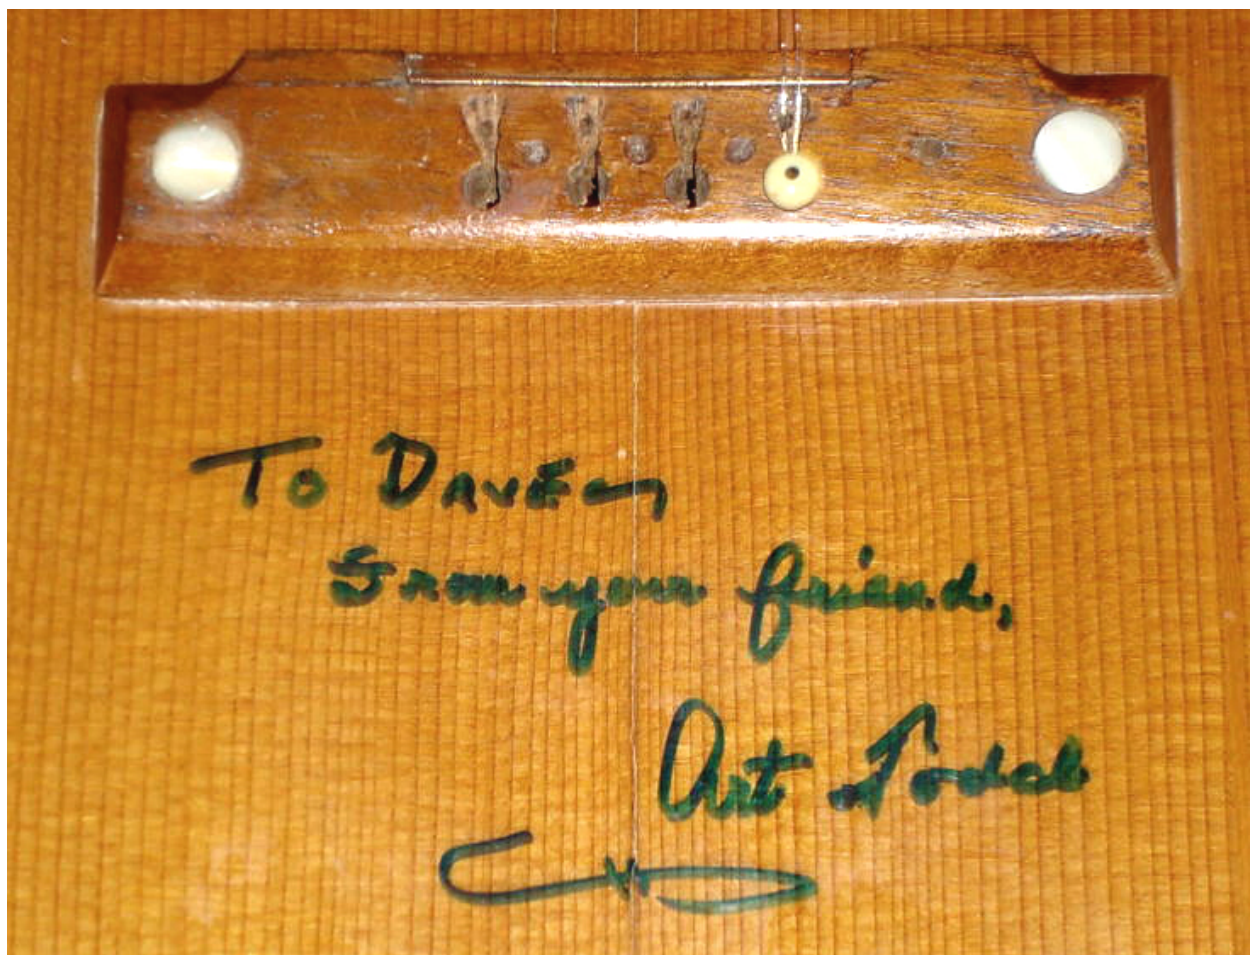 To Dave
From your friend,
Art Todd